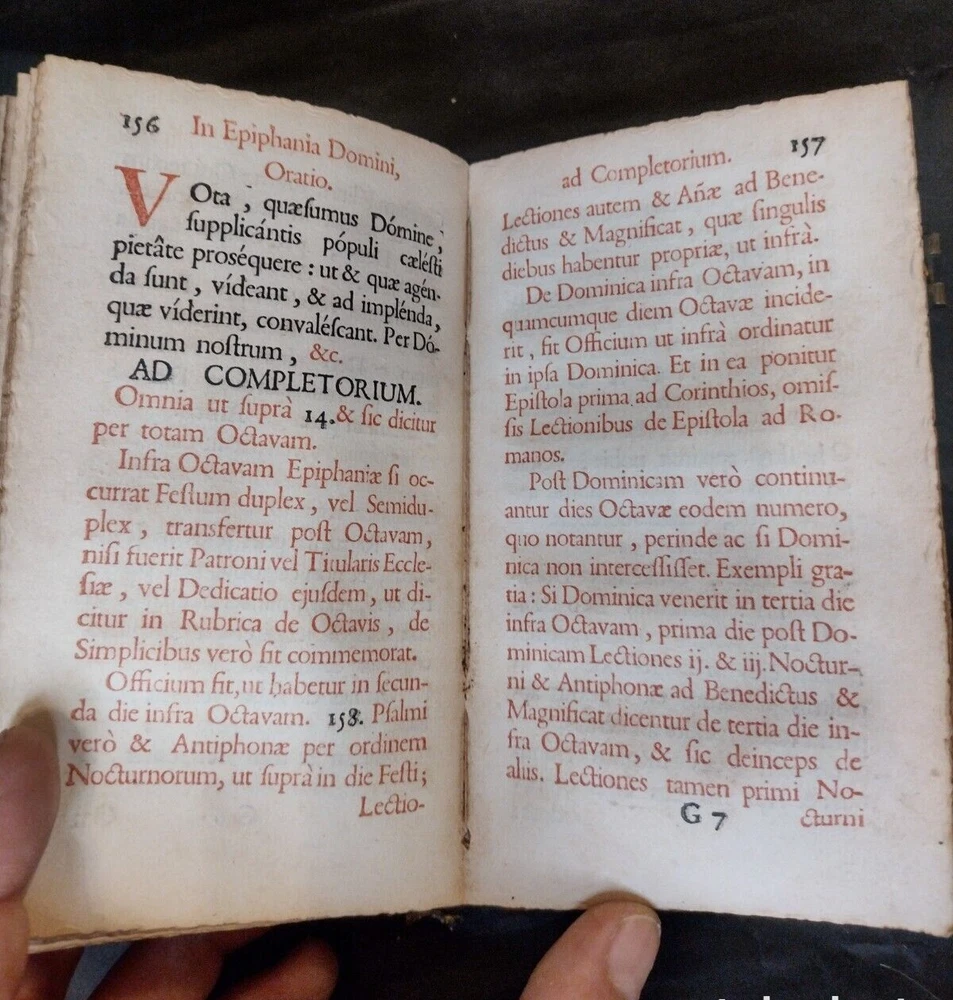 156 In Epiphania Domini,
Oratio.
VOta, quæſumus Dómine,
ſupplicántis pópuli cæléſti
pietâte proséquere : ut & quæ agén-
da ſunt, vídeant, & ad implénda,
quæ víderint, convaléſcant. Per Dó-
minum noſtrum, &c.
AD COMPLETORIUM.
Omnia ut ſuprà 14. & ſic dicitur
per totam Octavam.
Infra Octavam Epiphaniæ ſi oc-
currat Feſtum duplex, vel Semidu-
plex, transfertur poſt Octavam,
niſi fuerit Patroni vel Titularis Eccle-
ſiæ, vel Dedicatio ejuſdem, ut di-
citur in Rubrica de Octavis, de
Simplicibus verò fit commemorat.
Officium fit, ut habetur in ſecun-
da die infra Octavam. 158. Pſalmi
verò & Antiphonæ per ordinem
Nocturnorum, ut ſuprà in die Feſti;
Lectio-
ad Completorium. 157
Lectiones autem & Añæ ad Bene-
dictus & Magnificat, quæ ſingulis
diebus habentur propriæ, ut infrà.
De Dominica infra Octavam, in
quamcumque diem Octavæ incide-
rit, fit Officium ut infrà ordinatur
in ipſa Dominica. Et in ea ponitur
Epiſtola prima ad Corinthios, omiſ-
ſis Lectionibus de Epiſtola ad Ro-
manos.
Poſt Dominicam verò continu-
antur dies Octavæ eodem numero,
quo notantur, perinde ac ſi Domi-
nica non interceſſiſſet. Exempli gra-
tia : Si Dominica venerit in tertia die
infra Octavam, prima die poſt Do-
minicam Lectiones ij. & iij. Noctur-
ni & Antiphonæ ad Benedictus &
Magnificat dicentur de tertia die in-
fra Octavam, & ſic deinceps de
aliis. Lectiones tamen primi No-
G 7 cturni